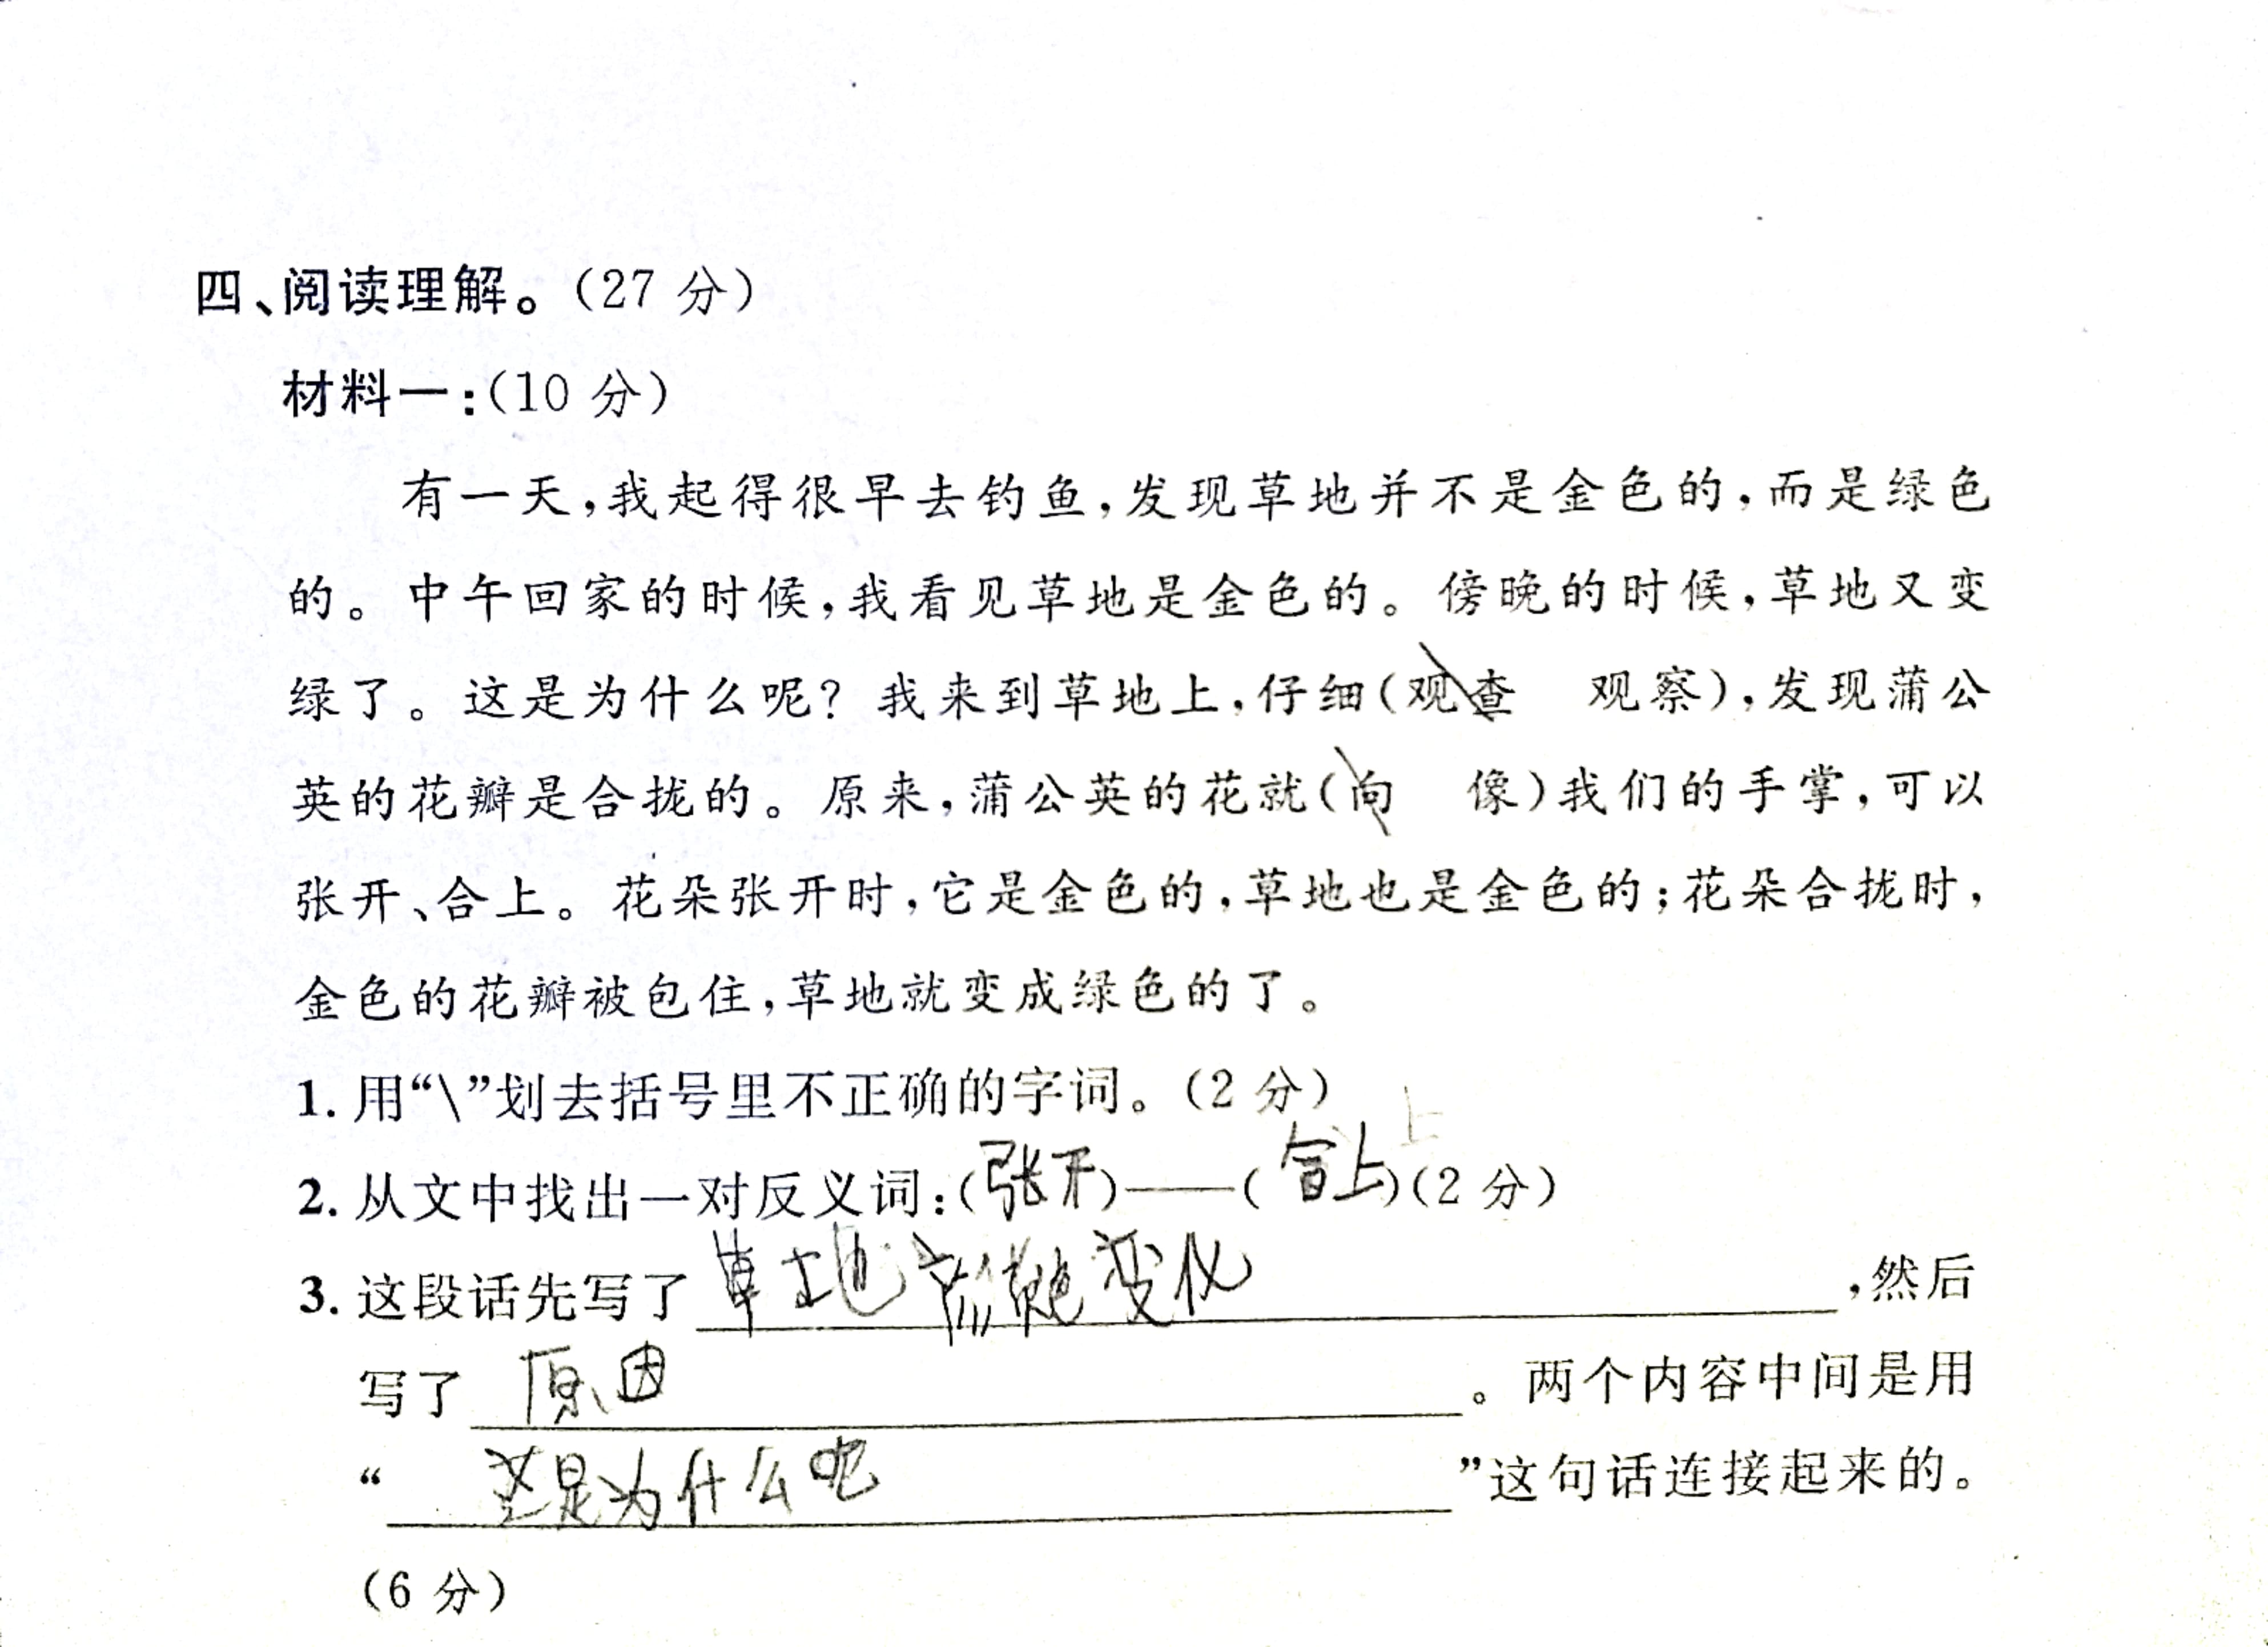 四、阅读理解。(27 分)
材料一:(10 分)
有一天,我起得很早去钓鱼,发现草地并不是金色的,而是绿色
的。中午回家的时候,我看见草地是金色的。傍晚的时候,草地又变
绿了。这是为什么呢?我来到草地上,仔细(观查 观察),发现蒲公
英的花瓣是合拢的。原来,蒲公英的花就(向 像)我们的手掌,可以
张开、合上。花朵张开时,它是金色的,草地也是金色的;花朵合拢时,
金色的花瓣被包住,草地就变成绿色的了。
1. 用“\”划去括号里不正确的字词。(2 分)
2. 从文中找出一对反义词:(张开)——(合上)(2 分)
3. 这段话先写了 草地 变化 ,然后
写了 原因 。两个内容中间是用
“ 这是为什么呢 ”这句话连接起来的。
(6 分)